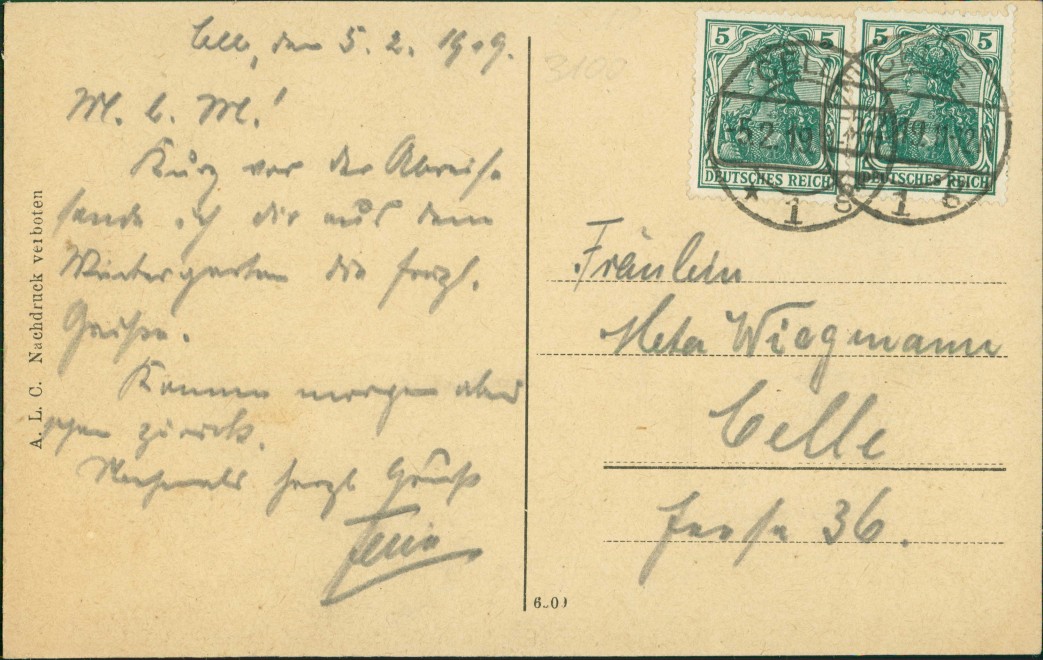 Celle, den 5. 2. 1919.
M. l. M.!
Kurz vor der Abreise
sende ich dir aus dem
Wintergarten die herzl.
Grüße.
Komme morgen abend
schon zurück.
Nochmals herzl Gruß
A. L. C. Nachdruck verboten
3100
5 5
DEUTSCHES REICH
5 5
DEUTSCHES REICH
CELLE
-5.2.19
* 1
1
Fräulein
Meta Wiegmann
Celle
36.
6..09